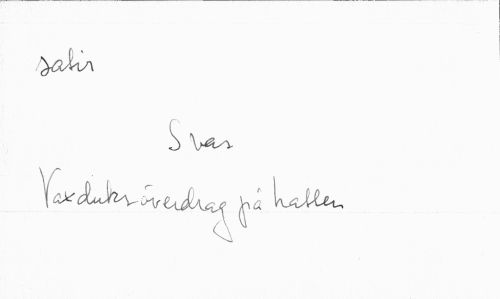 satir
Svar
Vaxduksöverdrag på hatten